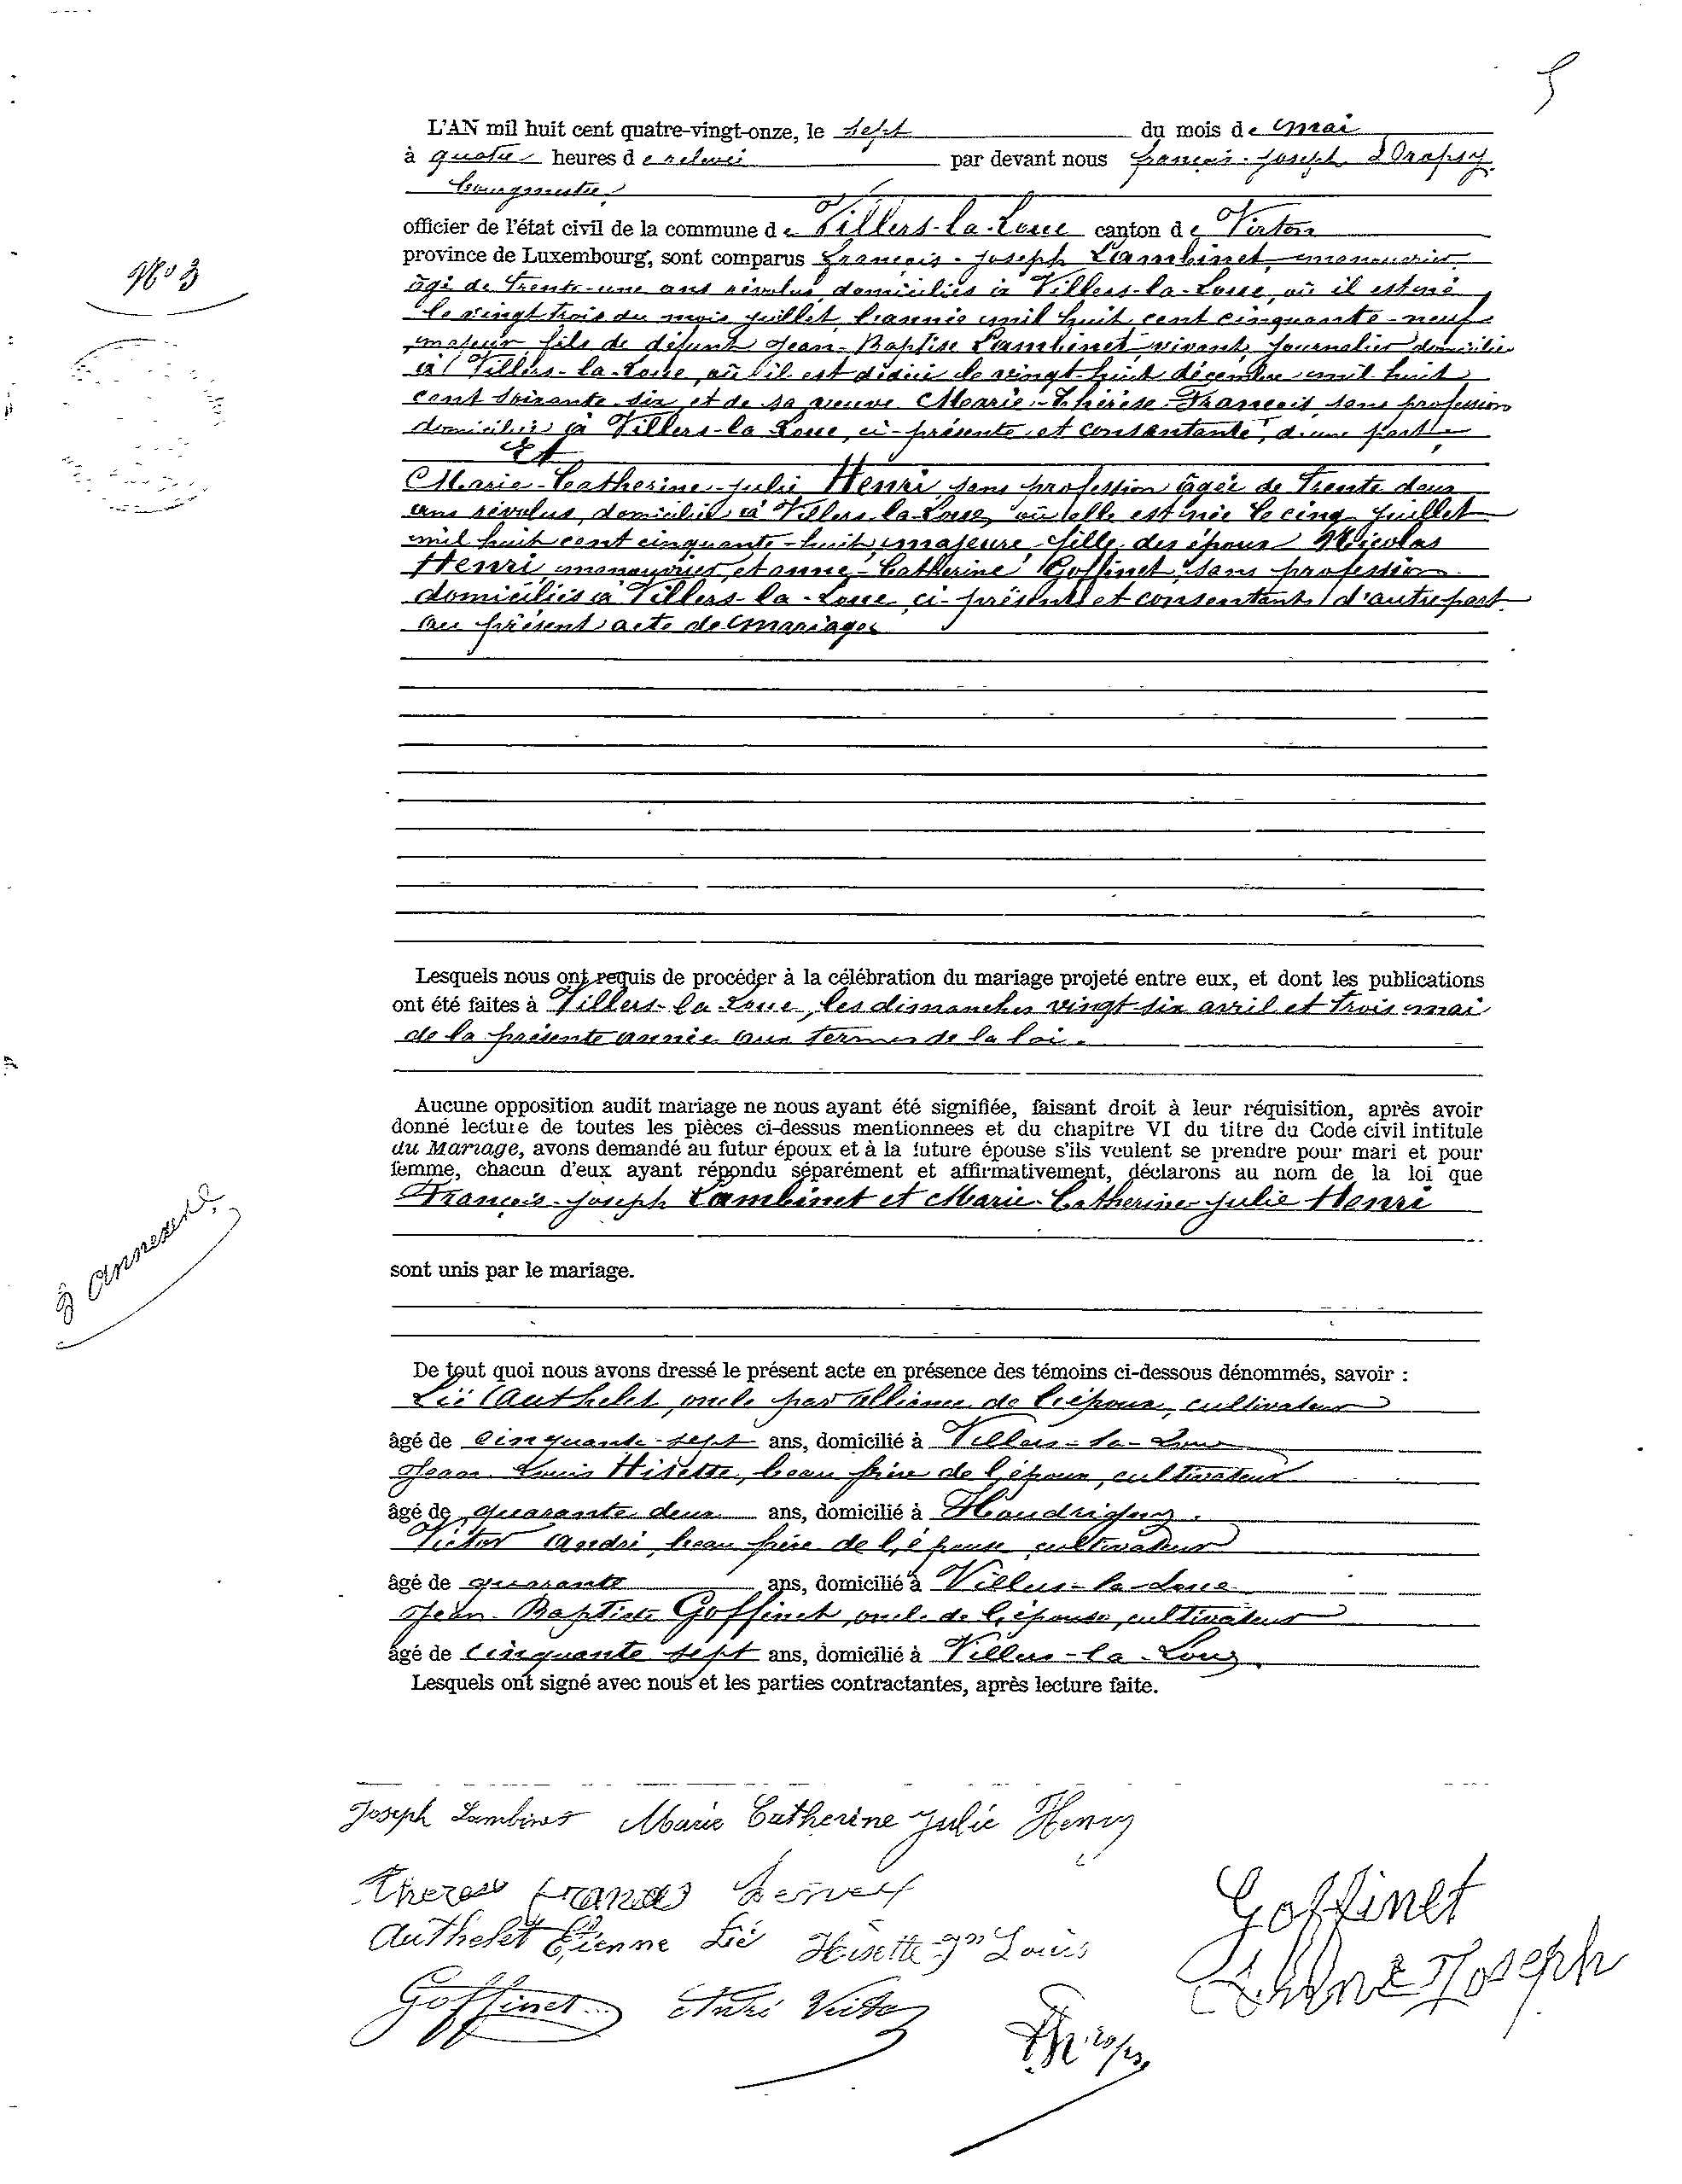 5
L'AN mil huit cent quatre-vingt-onze, le sept du mois de mai
à quatre heures de relevée par devant nous françois-joseph
bourgmestre
officier de l'état civil de la commune de Villers-la-Loue canton de Virton
province de Luxembourg, sont comparus françois-joseph Lambinet, manouvrier
âgé de trente-une ans révolus, domicilié à Villers-la-Loue, où il est né
le vingt trois du mois juillet, l'année mil huit cent cinquante-neuf
majeur, fils de défunt Jean-Baptiste Lambinet, vivant, journalier domicilié
à Villers-la-Loue, où il est décédé le vingt-huit décembre mil huit
cent soixante-six et de sa veuve Marie-Thérèse François, sans profession
domiciliée à Villers-la Loue, ci-présente et consentante, d'une part,
Et
Marie-Catherine-julie Henri, sans profession âgée de trente deux
ans révolus, domiciliée à Villers-la-Loue, où elle est née le cinq juillet
mil huit cent cinquante-huit, majeure, fille des époux Nicolas
Henri, manouvrier, et anne-Catherine Goffinet, sans profession
domiciliés à Villers-la-Loue, ci-présents et consentants, d'autre part
au présent acte de mariage.
N° 3
Lesquels nous ont requis de procéder à la célébration du mariage projeté entre eux, et dont les publications
ont été faites à Villers-la-Loue, les dimanches vingt-six avril et trois mai
de la présente année aux termes de la loi.
Aucune opposition audit mariage ne nous ayant été signifiée, faisant droit à leur réquisition, après avoir
donné lecture de toutes les pièces ci-dessus mentionnees et du chapitre VI du titre du Code civil intitule
du Mariage, avons demandé au futur époux et à la future épouse s'ils veulent se prendre pour mari et pour
femme, chacun d'eux ayant répondu séparément et affirmativement, déclarons au nom de la loi que
François-joseph Lambinet et Marie-Catherine-julie Henri
3 annexes
sont unis par le mariage.
De tout quoi nous avons dressé le présent acte en présence des témoins ci-dessous dénommés, savoir :
Lié Authelet, oncle par alliance de l'époux, cultivateur
âgé de cinquante-sept ans, domicilié à Villers-la-Loue
Jean Louis Hisette, beau frère de l'époux, cultivateur
âgé de quarante deux ans, domicilié à Houdrigny.
Victor André, beau frère de l'épouse, cultivateur
âgé de quarante ans, domicilié à Villers-la-Loue
Jean-Baptiste Goffinet, oncle de l'épouse, cultivateur
âgé de cinquante sept ans, domicilié à Villers-la-Loue.
Lesquels ont signé avec nous et les parties contractantes, après lecture faite.
Joseph Lambinet Marie Catherine Julie Henry
Therese francois
Authelet Etienne Lié Hisette Jn Louis
Goffinet
Joseph
Goffinet André Victor